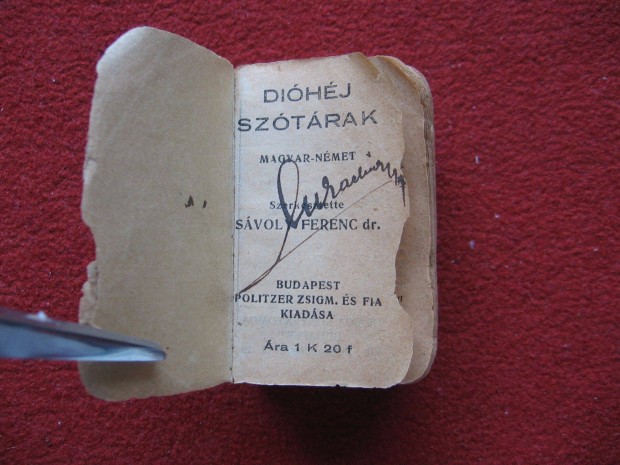 DIÓHÉJ
SZÓTÁRAK
MAGYAR-NÉMET
Szerkesztette
SÁVOLY FERENC dr.
BUDAPEST
POLITZER ZSIGM. ÉS FIA
KIADÁSA
Ára 1 K 20 f